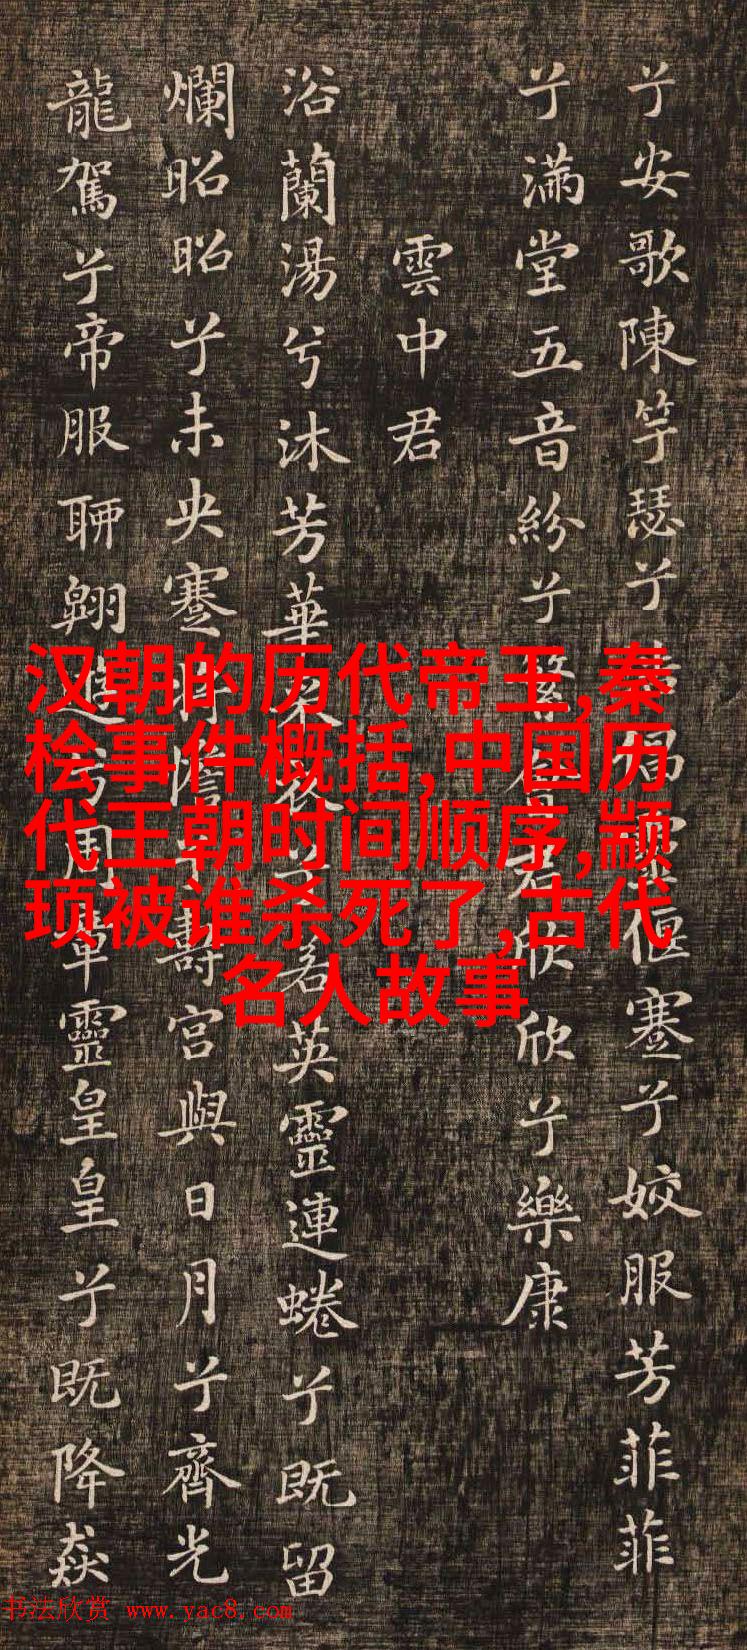 兮安歌陳竽瑟兮浩倡靈偃蹇兮姣服芳菲菲
兮滿堂五音紛兮繁會君欣欣兮樂康
雲中君
浴蘭湯兮沐芳華采衣兮若英靈連蜷兮既留
爛昭昭兮未央蹇將憺兮壽宮與日月兮齊光
龍駕兮帝服聊翱遊兮周章靈皇皇兮既降猋
汉朝的历代帝王,秦
桧事件概括,中国历
代王朝时间顺序,颛
顼被谁杀死了,古代
名人故事
书法欣赏 www.yac8.com